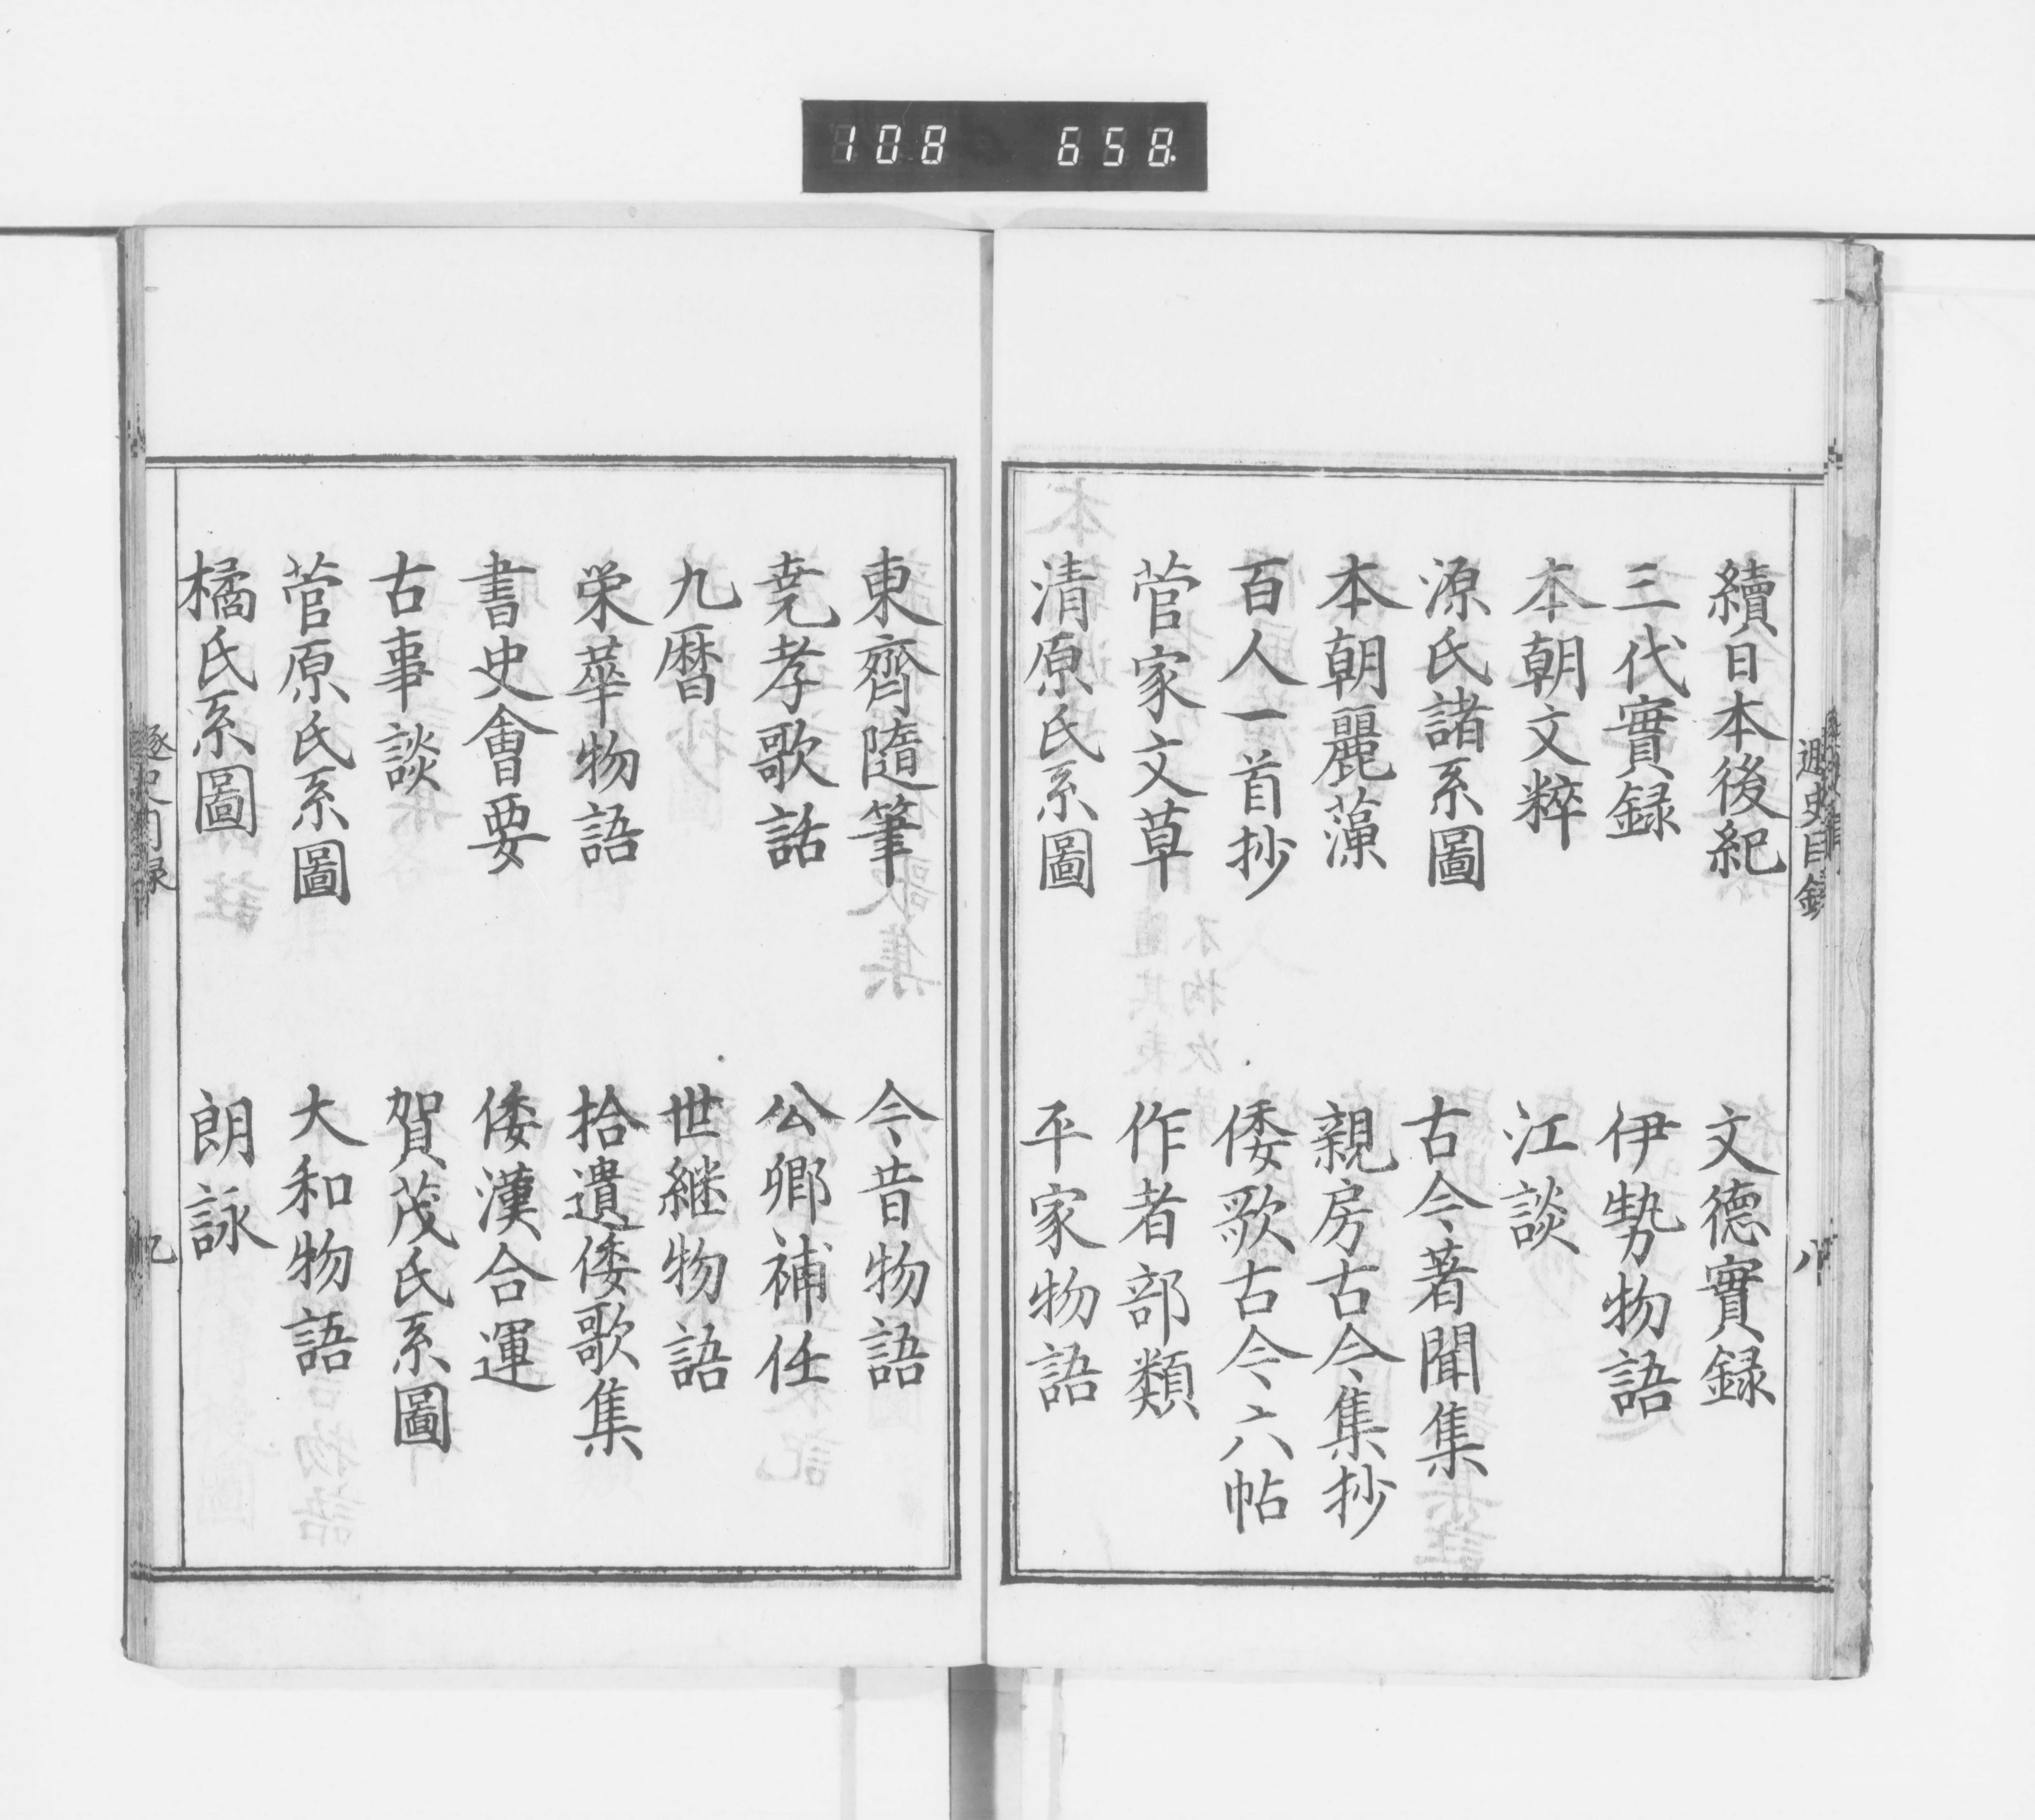 108 658
續日本後紀 文德實録
三代實録 伊勢物語
本朝文粹 江談
源氏諸系圖 古今著聞集
本朝麗藻 親房古今集抄
百人一首抄 倭歌古今六帖
菅家文草 作者部類
清原氏系圖 平家物語
東齊隨筆 今昔物語
尭孝歌話 公卿補任
九暦 世継物語
栄華物語 拾遺倭歌集
書史會要 倭漢合運
古事談 賀茂氏系圖
菅原氏系圖 大和物語
橘氏系圖 朗詠